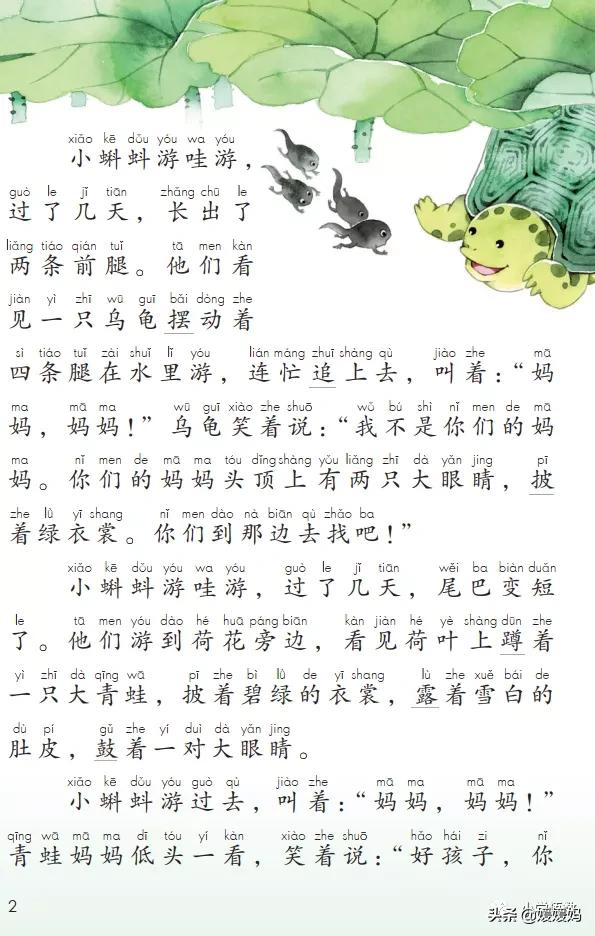 xiǎo kē dǒu yóu wa yóu
小蝌蚪游哇游，
guò le jǐ tiān zhǎng chū le
过了几天，长出了
liǎng tiáo qián tuǐ tā men kàn
两条前腿。他们看
jiàn yì zhī wū guī bǎi dòng zhe
见一只乌龟摆动着
sì tiáo tuǐ zài shuǐ lǐ yóu lián máng zhuī shàng qù jiào zhe mā
四条腿在水里游，连忙追上去，叫着：“妈
ma mā ma wū guī xiào zhe shuō wǒ bú shì nǐ men de mā
妈，妈妈！”乌龟笑着说：“我不是你们的妈
ma nǐ men de mā ma tóu dǐng shàng yǒu liǎng zhī dà yǎn jing pī
妈。你们的妈妈头顶上有两只大眼睛，披
zhe lǜ yī shang nǐ men dào nà biān qù zhǎo ba
着绿衣裳。你们到那边去找吧！”
xiǎo kē dǒu yóu wa yóu guò le jǐ tiān wěi ba biàn duǎn
小蝌蚪游哇游，过了几天，尾巴变短
le tā men yóu dào hé huā páng biān kàn jiàn hé yè shàng dūn zhe
了。他们游到荷花旁边，看见荷叶上蹲着
yì zhī dà qīng wā pī zhe bì lǜ de yī shang lù zhe xuě bái de
一只大青蛙，披着碧绿的衣裳，露着雪白的
dù pí gǔ zhe yí duì dà yǎn jing
肚皮，鼓着一对大眼睛。
xiǎo kē dǒu yóu guò qù jiào zhe mā ma mā ma
小蝌蚪游过去，叫着：“妈妈，妈妈！”
qīng wā mā ma dī tóu yí kàn xiào zhe shuō hǎo hái zi nǐ
青蛙妈妈低头一看，笑着说：“好孩子，你
2
头条 @媛媛妈